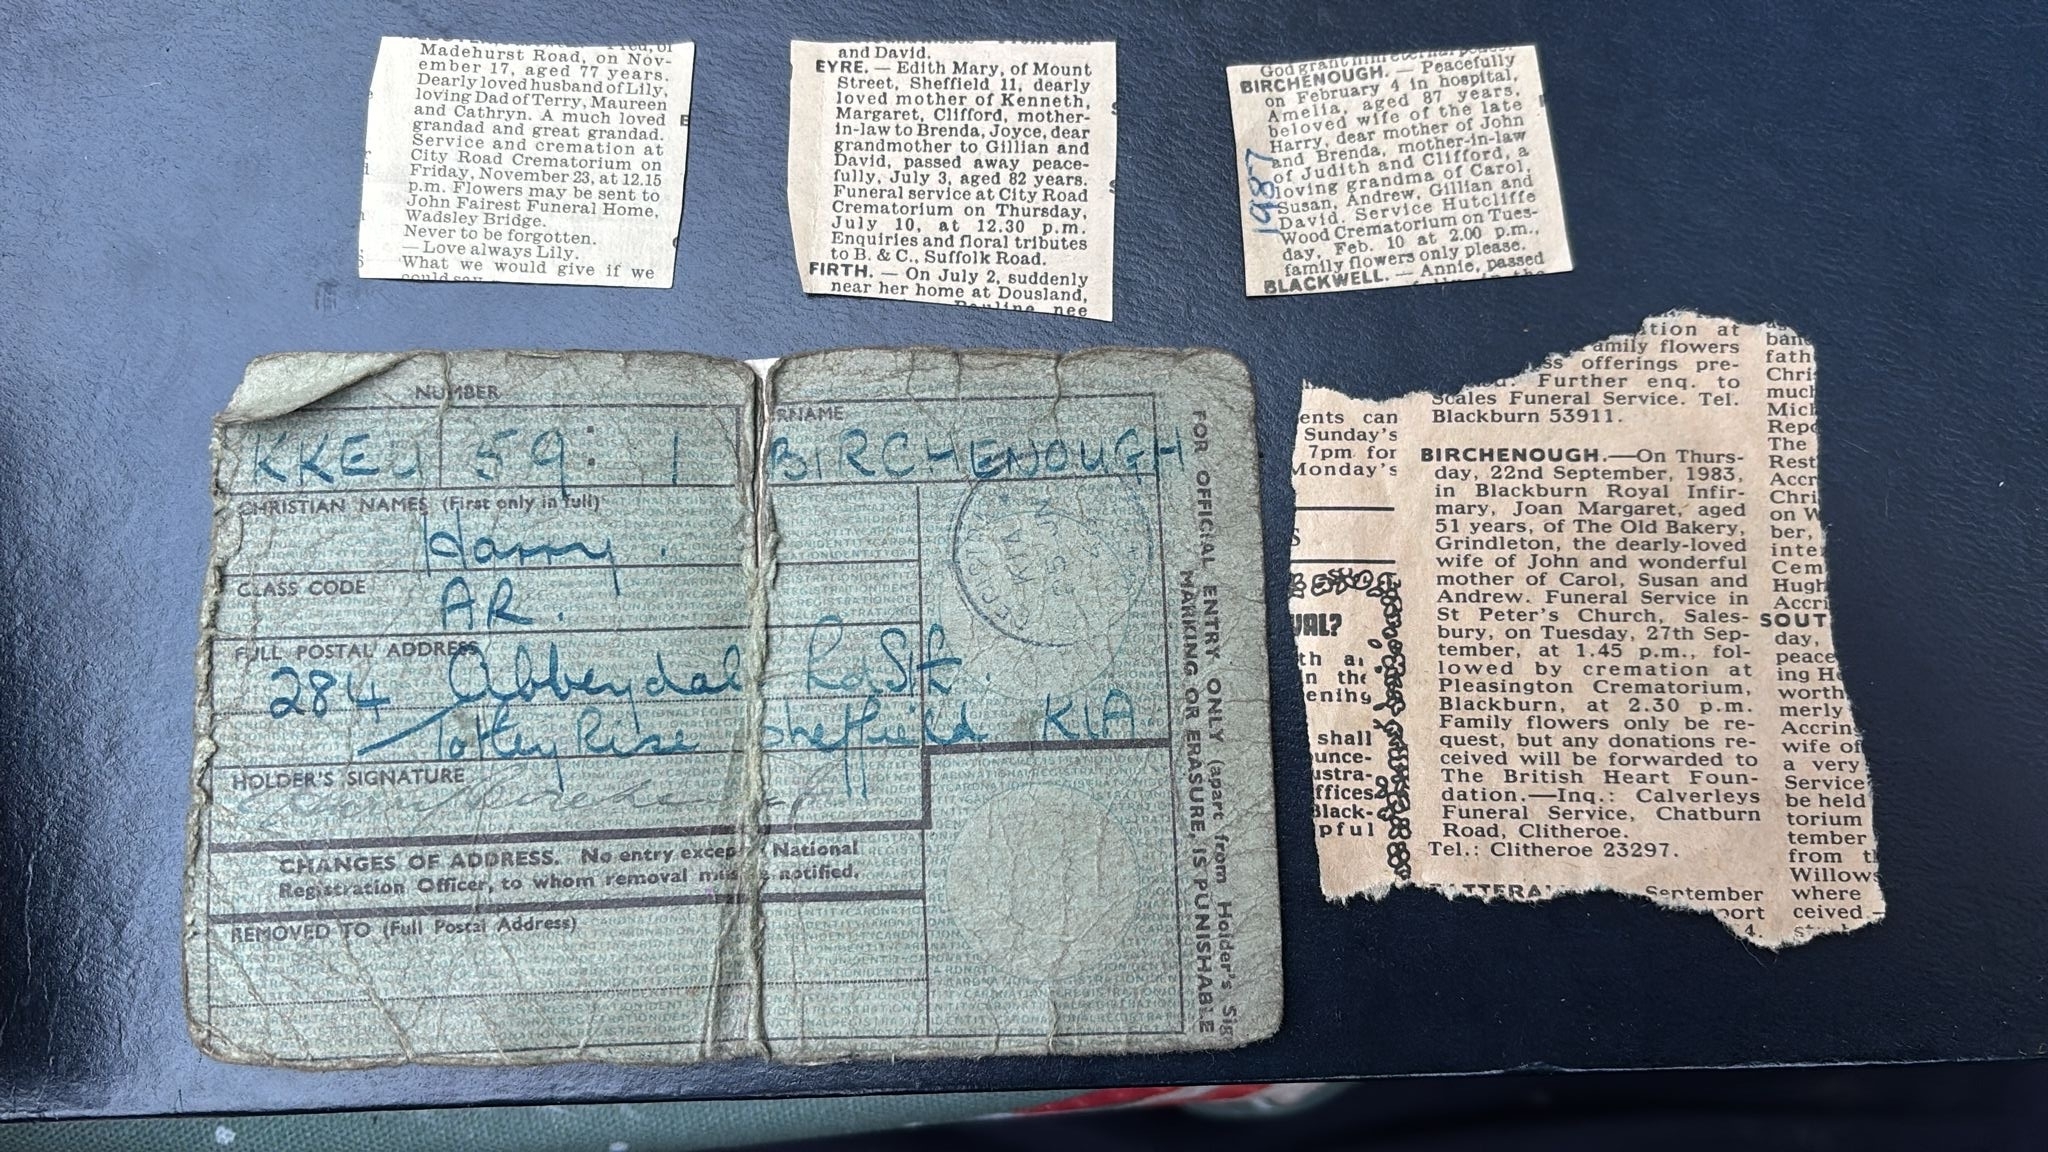 Madehurst Road, on Nov-
ember 17, aged 77 years.
Dearly loved husband of Lily,
loving Dad of Terry, Maureen
and Cathryn. A much loved
grandad and great grandad.
Service and cremation at
City Road Crematorium on
Friday, November 23, at 12.15
p.m. Flowers may be sent to
John Fairest Funeral Home,
Wadsley Bridge.
Never to be forgotten.
— Love always Lily.
What we would give if we
could say
and David.
EYRE. — Edith Mary, of Mount
Street, Sheffield 11, dearly
loved mother of Kenneth,
Margaret, Clifford, mother-
in-law to Brenda, Joyce, dear
grandmother to Gillian and
David, passed away peace-
fully, July 3, aged 82 years.
Funeral service at City Road
Crematorium on Thursday,
July 10, at 12.30 p.m.
Enquiries and floral tributes
to B. & C., Suffolk Road.
FIRTH. — On July 2, suddenly
near her home at Dousland,
Pauline, nee
God grant him eternal
BIRCHENOUGH. — Peacefully
on February 4 in hospital,
Amelia, aged 87 years,
beloved wife of the late
Harry, dear mother of John
and Brenda, mother-in-law
of Judith and Clifford, a
loving grandma of Carol,
Susan, Andrew, Gillian and
David. Service Hutcliffe
Wood Crematorium on Tues-
day, Feb. 10 at 2.00 p.m.,
family flowers only please.
BLACKWELL. — Annie, passed
1987
NUMBER
KKEJ 59: 1
RNAME
BIRCHENOUGH
CHRISTIAN NAMES (First only in full)
Harry.
CLASS CODE
AR.
FULL POSTAL ADDRESS
284 Abbeydal Rd Sth.
Totley Rise Sheffield KIA
HOLDER'S SIGNATURE
CHANGES OF ADDRESS. No entry except National
Registration Officer, to whom removal must be notified.
REMOVED TO (Full Postal Address)
FOR OFFICIAL ENTRY ONLY (apart from Holder's Sig
MARKING OR ERASURE, IS PUNISHABLE
ation at
amily flowers
ss offerings pre-
Further enq. to
Scales Funeral Service. Tel.
Blackburn 53911.
BIRCHENOUGH.—On Thurs-
day, 22nd September, 1983,
in Blackburn Royal Infir-
mary, Joan Margaret, aged
51 years, of The Old Bakery,
Grindleton, the dearly-loved
wife of John and wonderful
mother of Carol, Susan and
Andrew. Funeral Service in
St Peter's Church, Sales-
bury, on Tuesday, 27th Sep-
tember, at 1.45 p.m., fol-
lowed by cremation at
Pleasington Crematorium,
Blackburn, at 2.30 p.m.
Family flowers only be re-
quest, but any donations re-
ceived will be forwarded to
The British Heart Foun-
dation.—Inq.: Calverleys
Funeral Service, Chatburn
Road, Clitheroe.
Tel.: Clitheroe 23297.
September
port
4.
ents can
Sunday's
7pm for
Monday's
S
UAL?
th a
n the
ening
shall
ounce-
ustra-
ffices
Black-
pful
band
fath
Chri
much
Mich
Repo
The
Rest
Accr
Chri
on W
ber,
inter
Cem
Hugh
Accri
SOUT
day,
peace
ing H
worth
merly
Accring
wife of
a very
Service
be held
torium
tember
from th
Willows
where
ceived